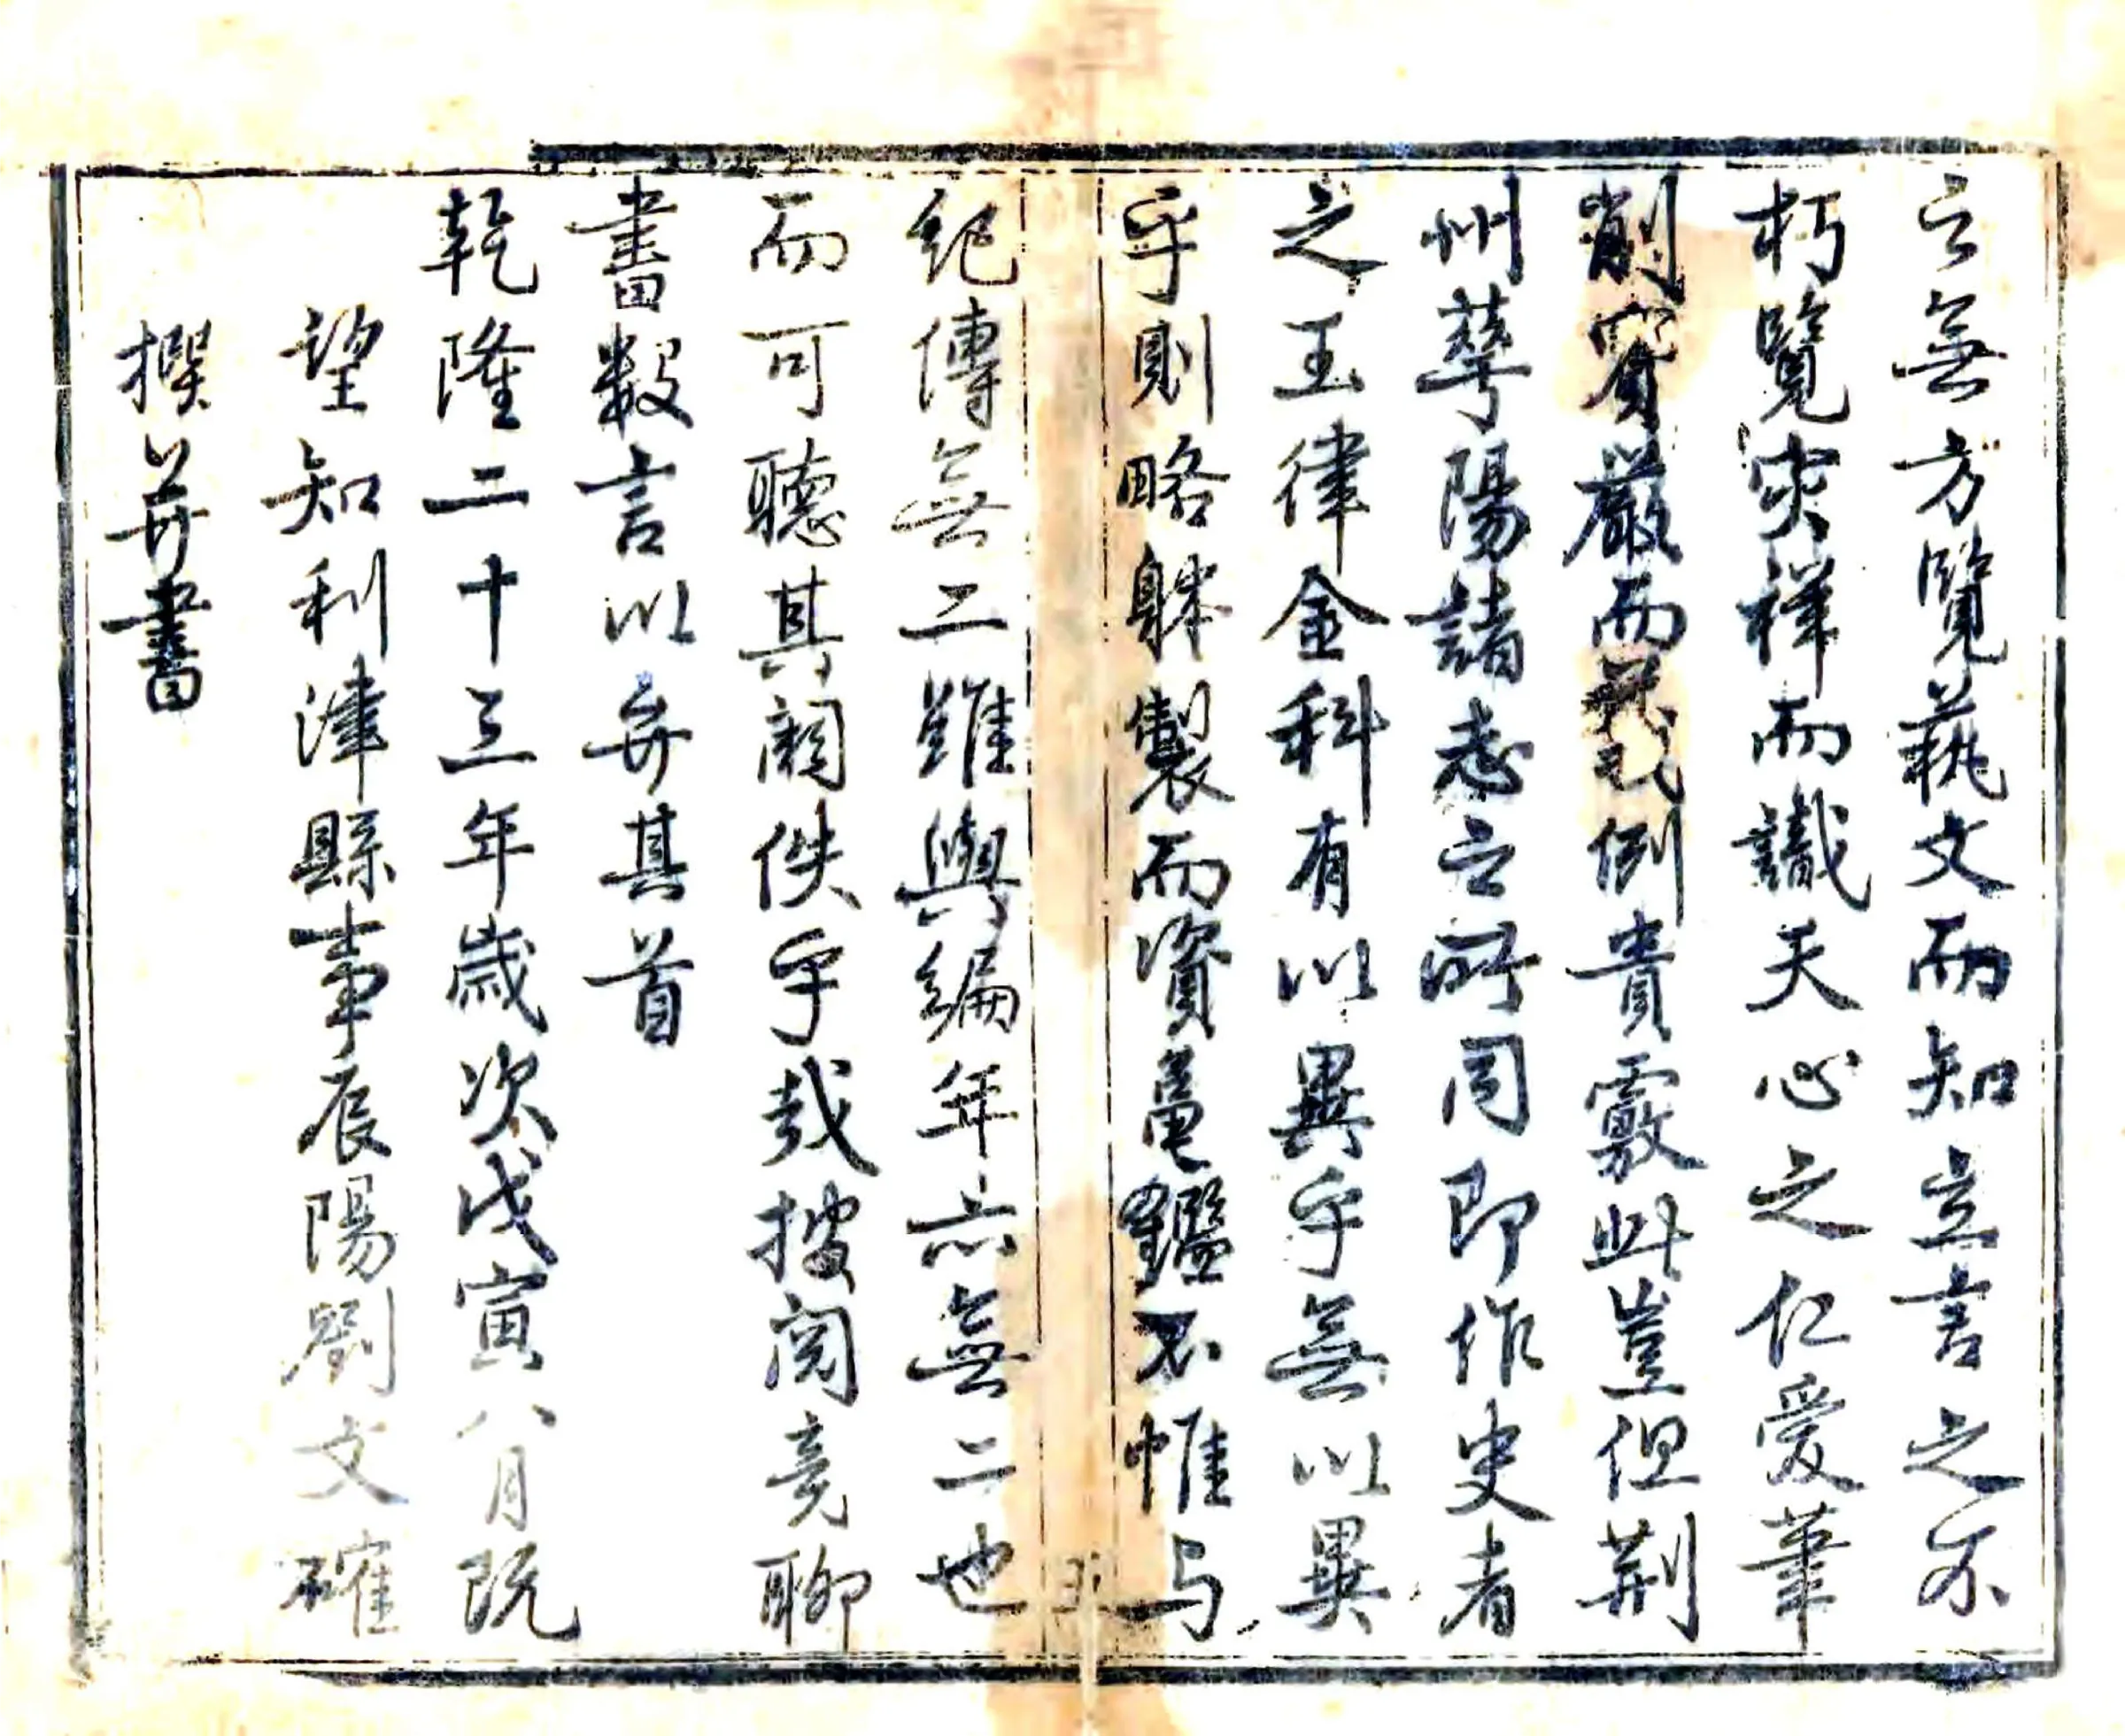 之無方覽藝文而知立言之不
朽覽灾祥而識天心之仁愛筆
削寔嚴而義例貴覈此豈但荆
州華陽諸志之所同即作史者
之玉律金科有以異乎無以異
乎則略躰製而資龜鑑不惟与
紀傳無二雖與編年亦無二也
而可聽其闕佚乎哉披閱竟聊
書數言以弁其首
乾隆二十三年歲次戊寅八月既
望知利津縣事辰陽劉文確
撰并書